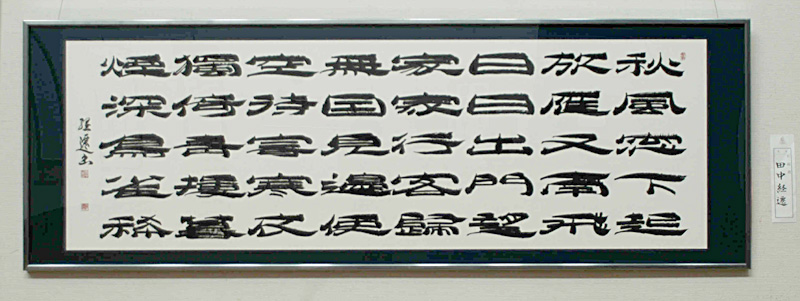 秋風窓下起
旅雁又南飛
日日出門望
家家行客歸
無因見邊使
空待寄寒衣
獨倚青樓暮
煙深鳥雀稀
田中